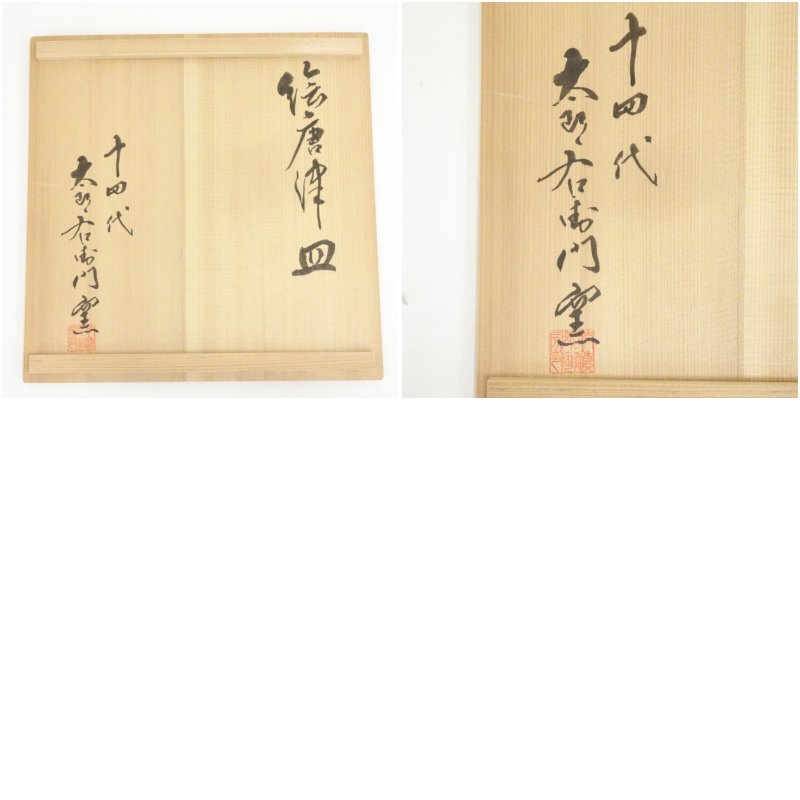 絵唐津皿
十四代
太郎右衛門窯
十四代
太郎右衛門窯